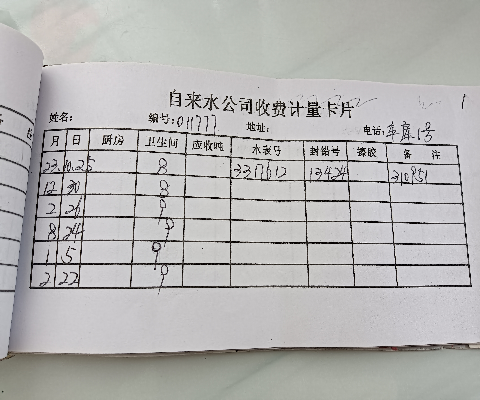 自来水公司收费计量卡片
姓名: 编号: 011777 地址: 电话: 车库1号
月 日 厨房 卫生间 应收吨 水表号 封铅号 橡胶 备注
23.10.25 8 3317612 13424 310851
12 30 8
2 26 9
8 24 9
1 5 9
2 22 9